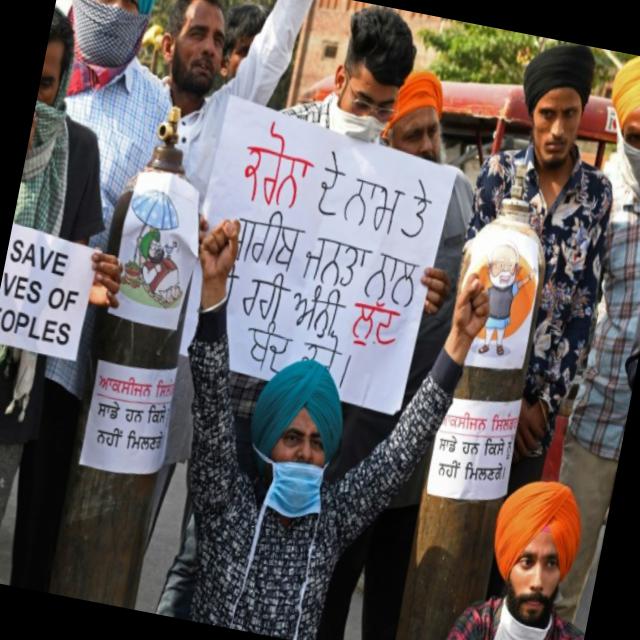 SAVE
VES OF
OPLES
ਕਰੋਨਾ ਦੇ ਨਾਮ ਤੇ
ਗਰੀਬ ਜਨਤਾ ਨਾਲ
ਰਹੀ ਅੰਨੀ ਲੁੱਟ
ਬੰਦ ਕਰੋ।
ਆਕਸੀਜਨ
ਸਾਡੇ ਹਨ ਕਿਸੇ
ਨਹੀਂ ਮਿਲਣਗੇ
ਆਕਸੀਜਨ
ਸਾਡੇ ਹਨ ਕਿਸੇ ਨੂੰ
ਨਹੀਂ ਮਿਲਣਗੇ।